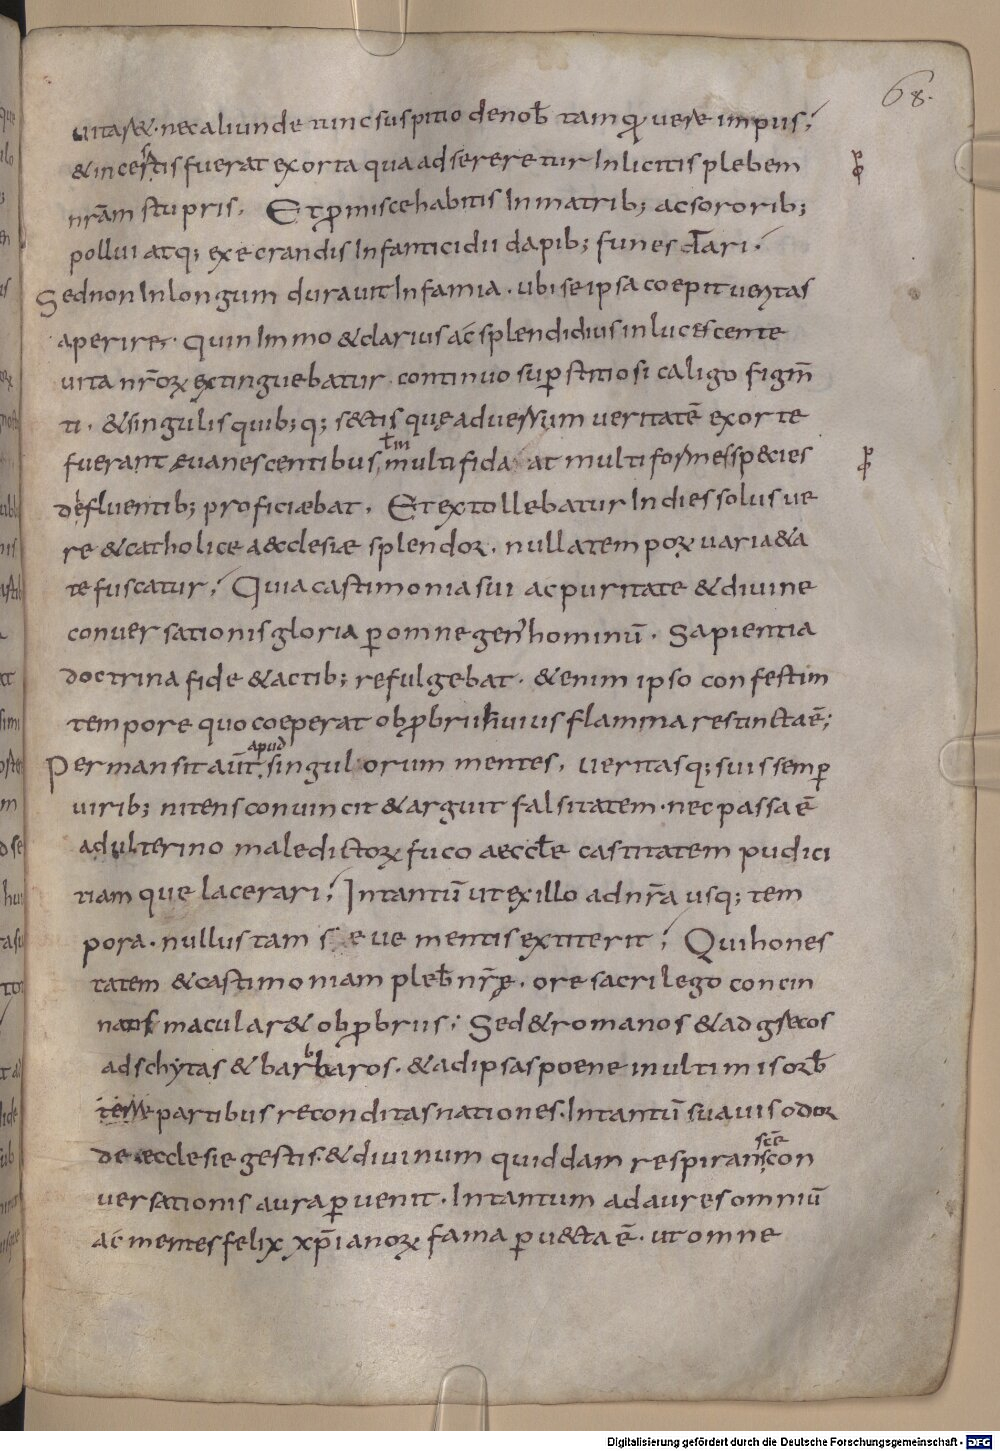 68.
uitas&. nec aliunde tunc suspitio de nob̄ tamq̄ uere impus;
& incestis fuerat exorta qua adsereretur Inlicitis plebem
nr̄am stupris. Et ꝓmisce habitis In matrib; ac sororib;
pollui atq; execrandis Infanticidii dapib; funestari.
Sed non In longum durauit Infamia. ubi se ipsa coepit ueritas
aperire. quin Immo & clarius ac splendidius inlucescente
uita nr̄oꝝ extinguebatur continuo suꝑstitiosi caligo figm̄
ti. & singulis quib;q; sectis que aduersum ueritatē exorte
fuerant euanescentibus, tm̄ multifida at multiformes species
defluentib; proficiæbat. Et extollebatur In dies solus ue
re & catholice aecclesiæ splendor. nulla tempoꝝ uaria &a
te fuscatur; Quia castimonia sui ac puritate & diuine
conuersationis gloria ꝑ omne gen' hominū. Sapientia
doctrina fide & actib; refulgebat. & enim ipso confestim
tempore quo coeperat obꝓbrii huius flamma restincta ē;
Permansit aūt apud singulorum mentes, ueritasq; suis semꝑ
uirib; nitens conuincit & arguit falsitatem. nec passa ē
adulterino maledictoꝝ fuco aecctē castitatem pudici
tiam que lacerari; In tantū ut ex illo ad nr̄a usq; tem
pora. nullus tam seue mentis extiterit; Qui hones
tatem & castimoniam pleb̄ nr̄ę. ore sacrilego concin
natis macular& obꝓbriis; Sed & romanos & ad grecos
ad schytas & barbaros. & ad ipsas poene in ultimis orb̄
terre partibus reconditas nationes. In tantū suauis odor
de æcclesie gestis. & diuinum quiddam respirans scē con
uersationis aura ꝑuenit. In tantum ad aures omniū
ac mentes felix xp̄ianoꝝ fama ꝑuecta ē. ut omne
Digitalisierung gefördert durch die Deutsche Forschungsgemeinschaft - DFG